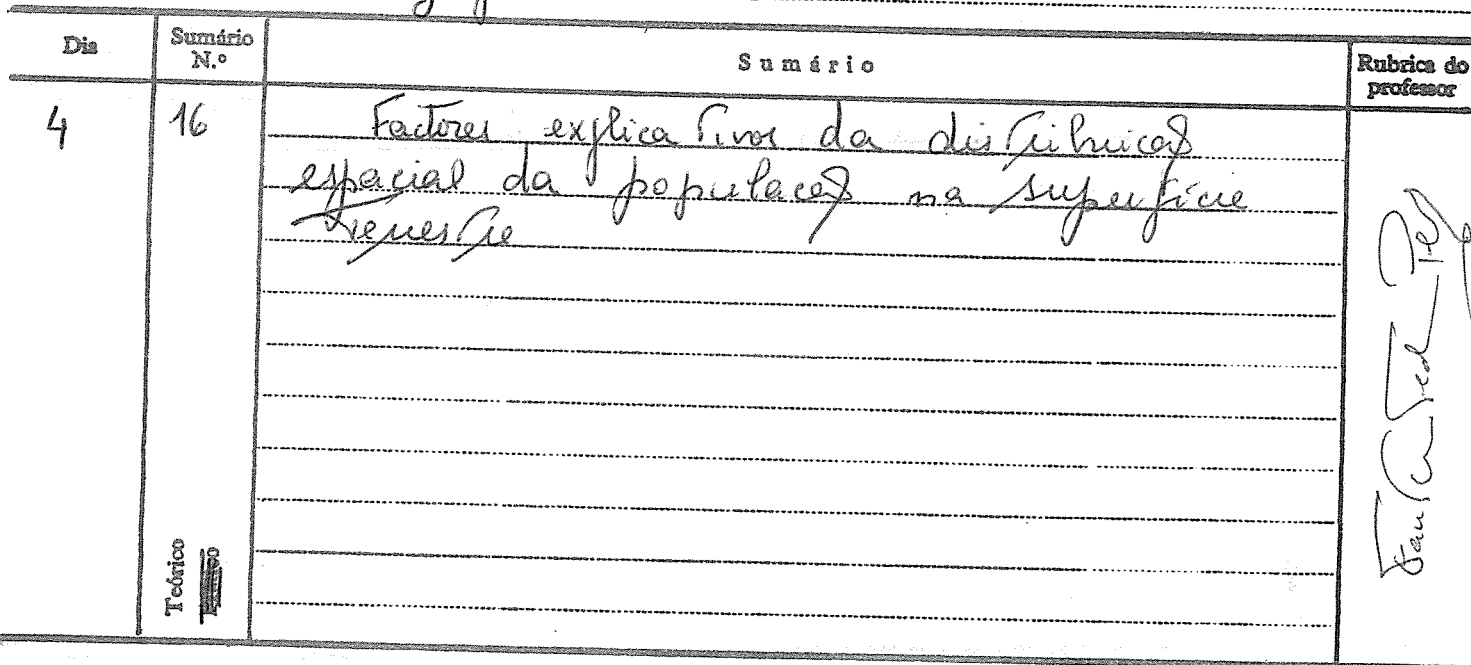 Dia
Sumário N.º
Sumário
Rubrica do professor
4
16
Factores explicativos da distribuição
espacial da população na superfície
terrestre
Teórico